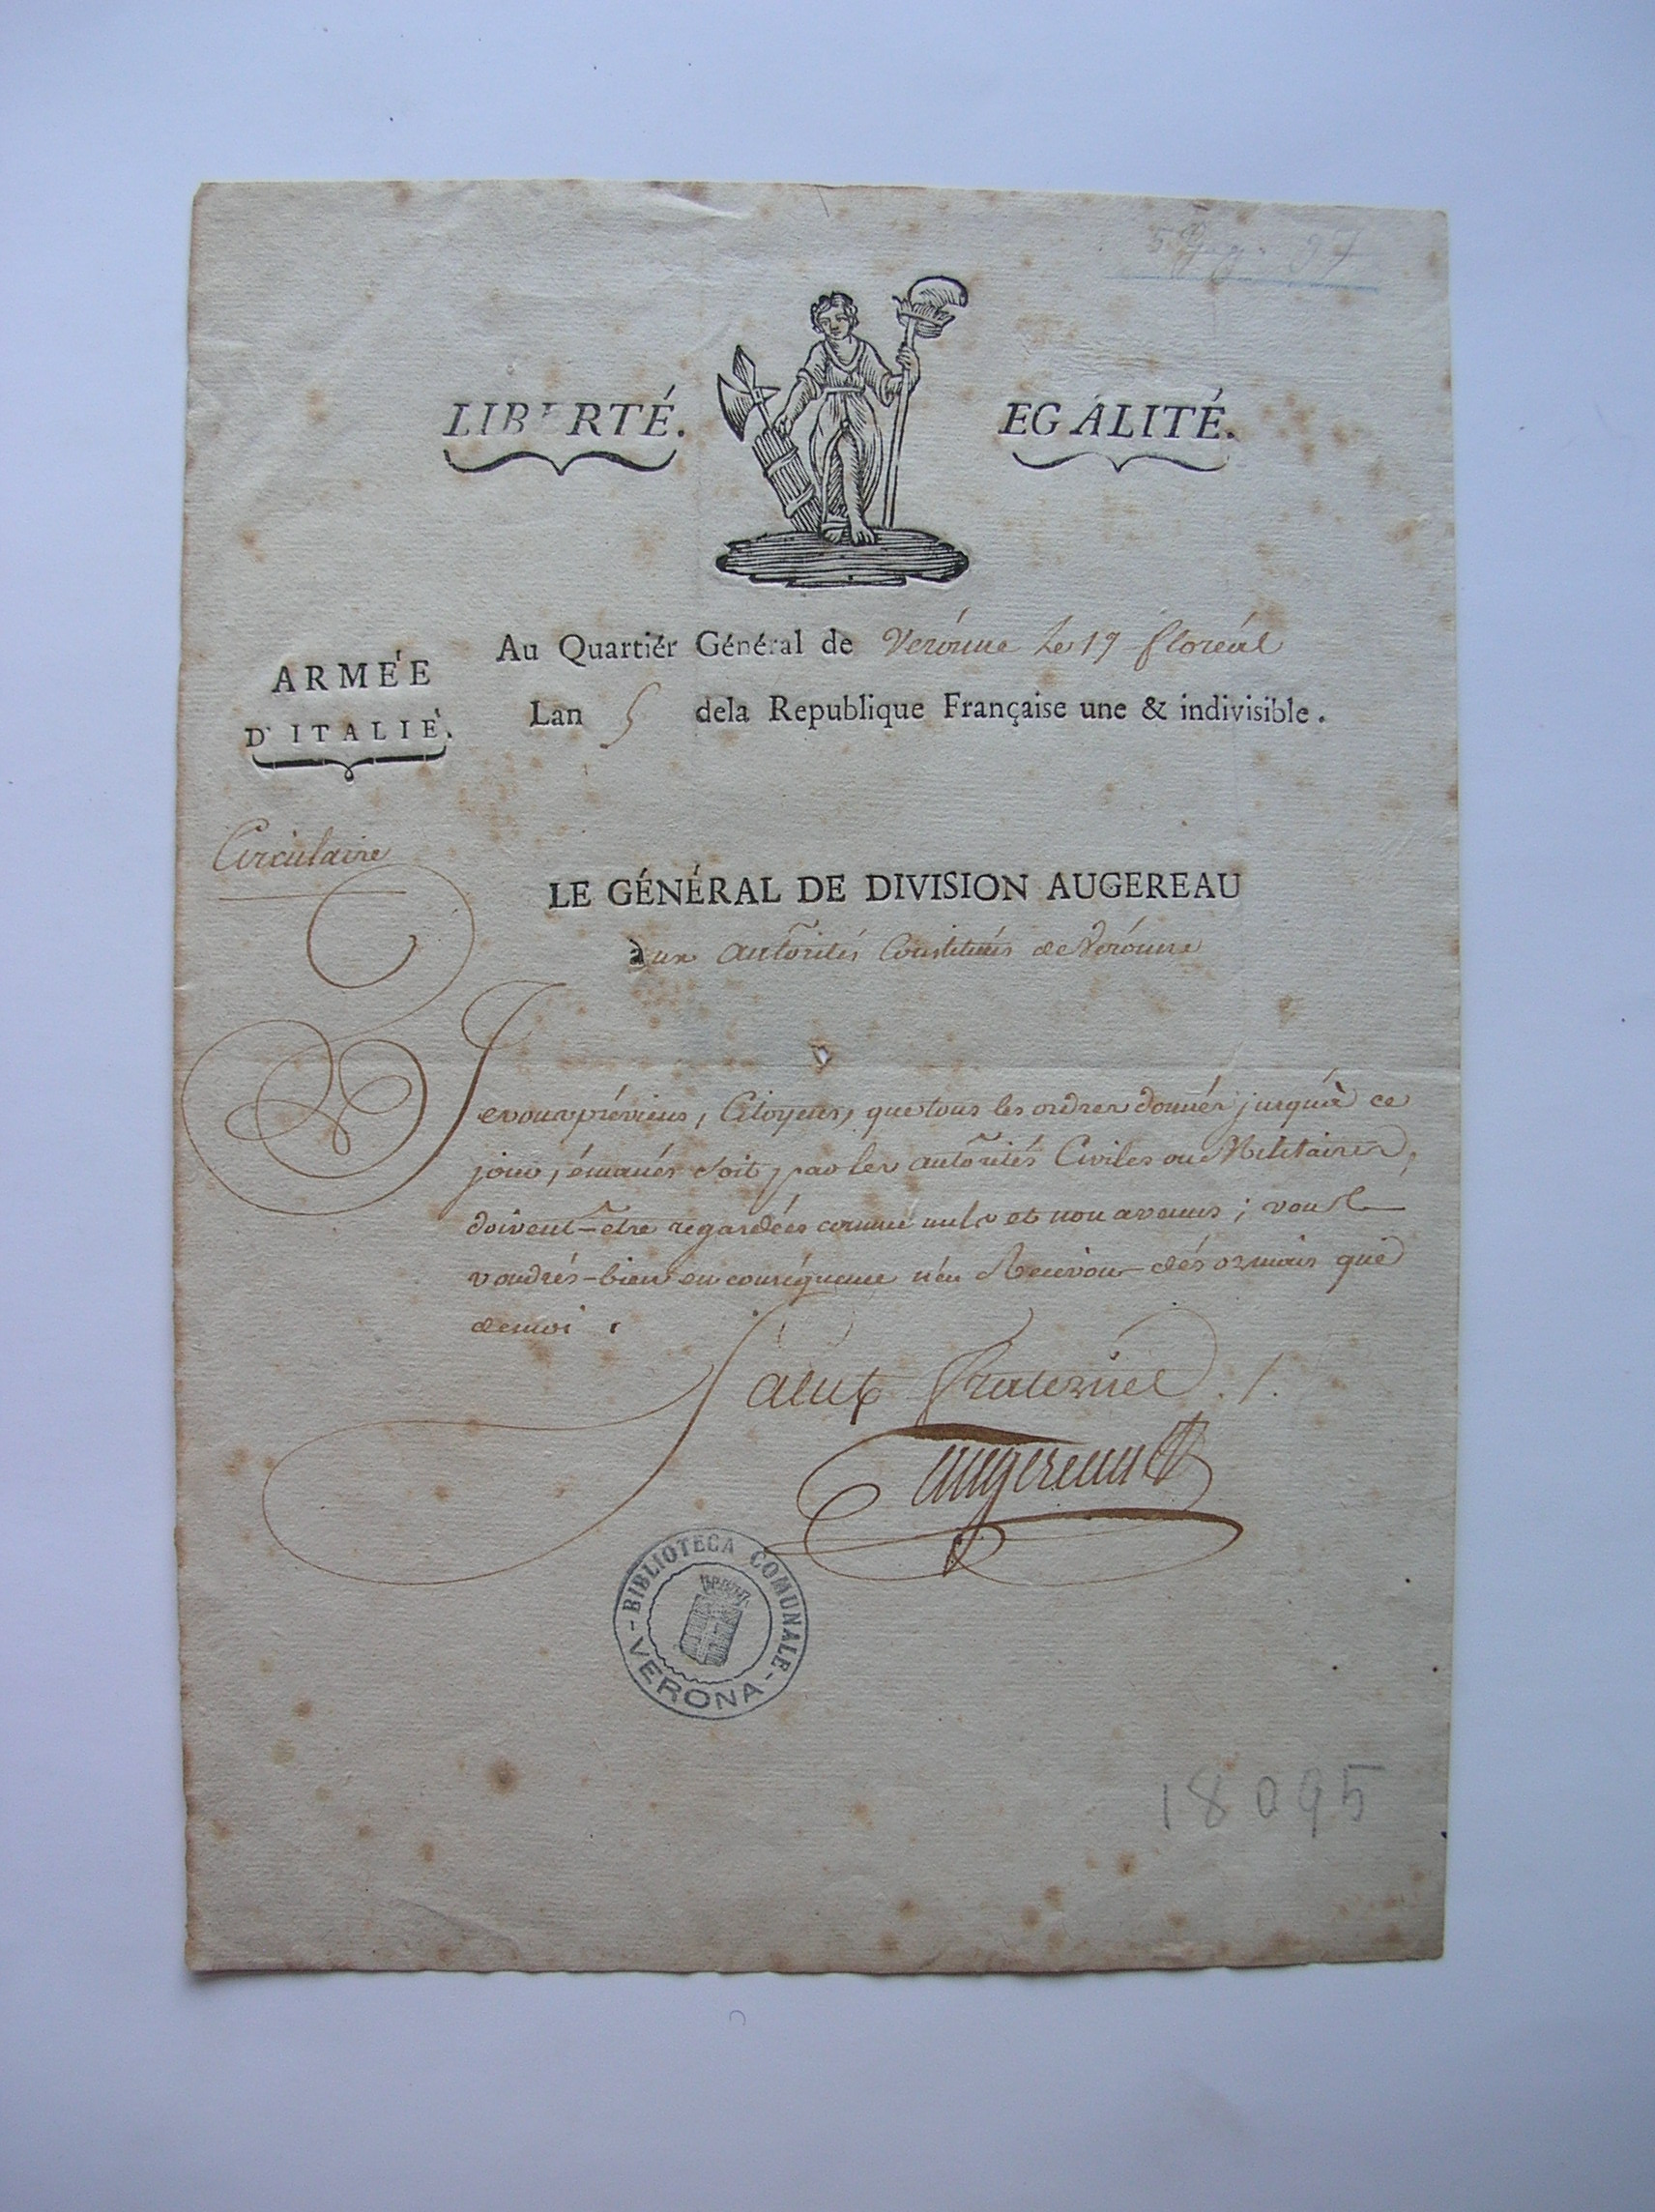 LIBERTÉ. EGALITÉ.
ARMÉE
D'ITALIE.
Au Quartiér Général de Verónne Le 19 floréal
Lan 5 dela Republique Française une & indivisible.
Circulaire
LE GÉNÉRAL DE DIVISION AUGEREAU
aux autorités Constituées de Verónne
Je vous préviens, Citoyens, que tous les ordres donnés jusqu'à ce
jour, émanés soit, par les autorités Civiles ou Militaires,
doivent-être regardées comme nuls et non avenus ; vous
voudrés-bien en conséquence n'en Recevoir désormais que
de moi.
Salut fraternel ./.
augereau
BIBLIOTECA COMUNALE
- VERONA -
18095